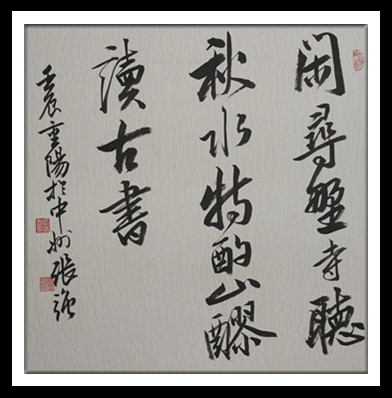 閑尋野寺聽
秋水特酌山醪
讀古書
壬辰重陽於中州張強